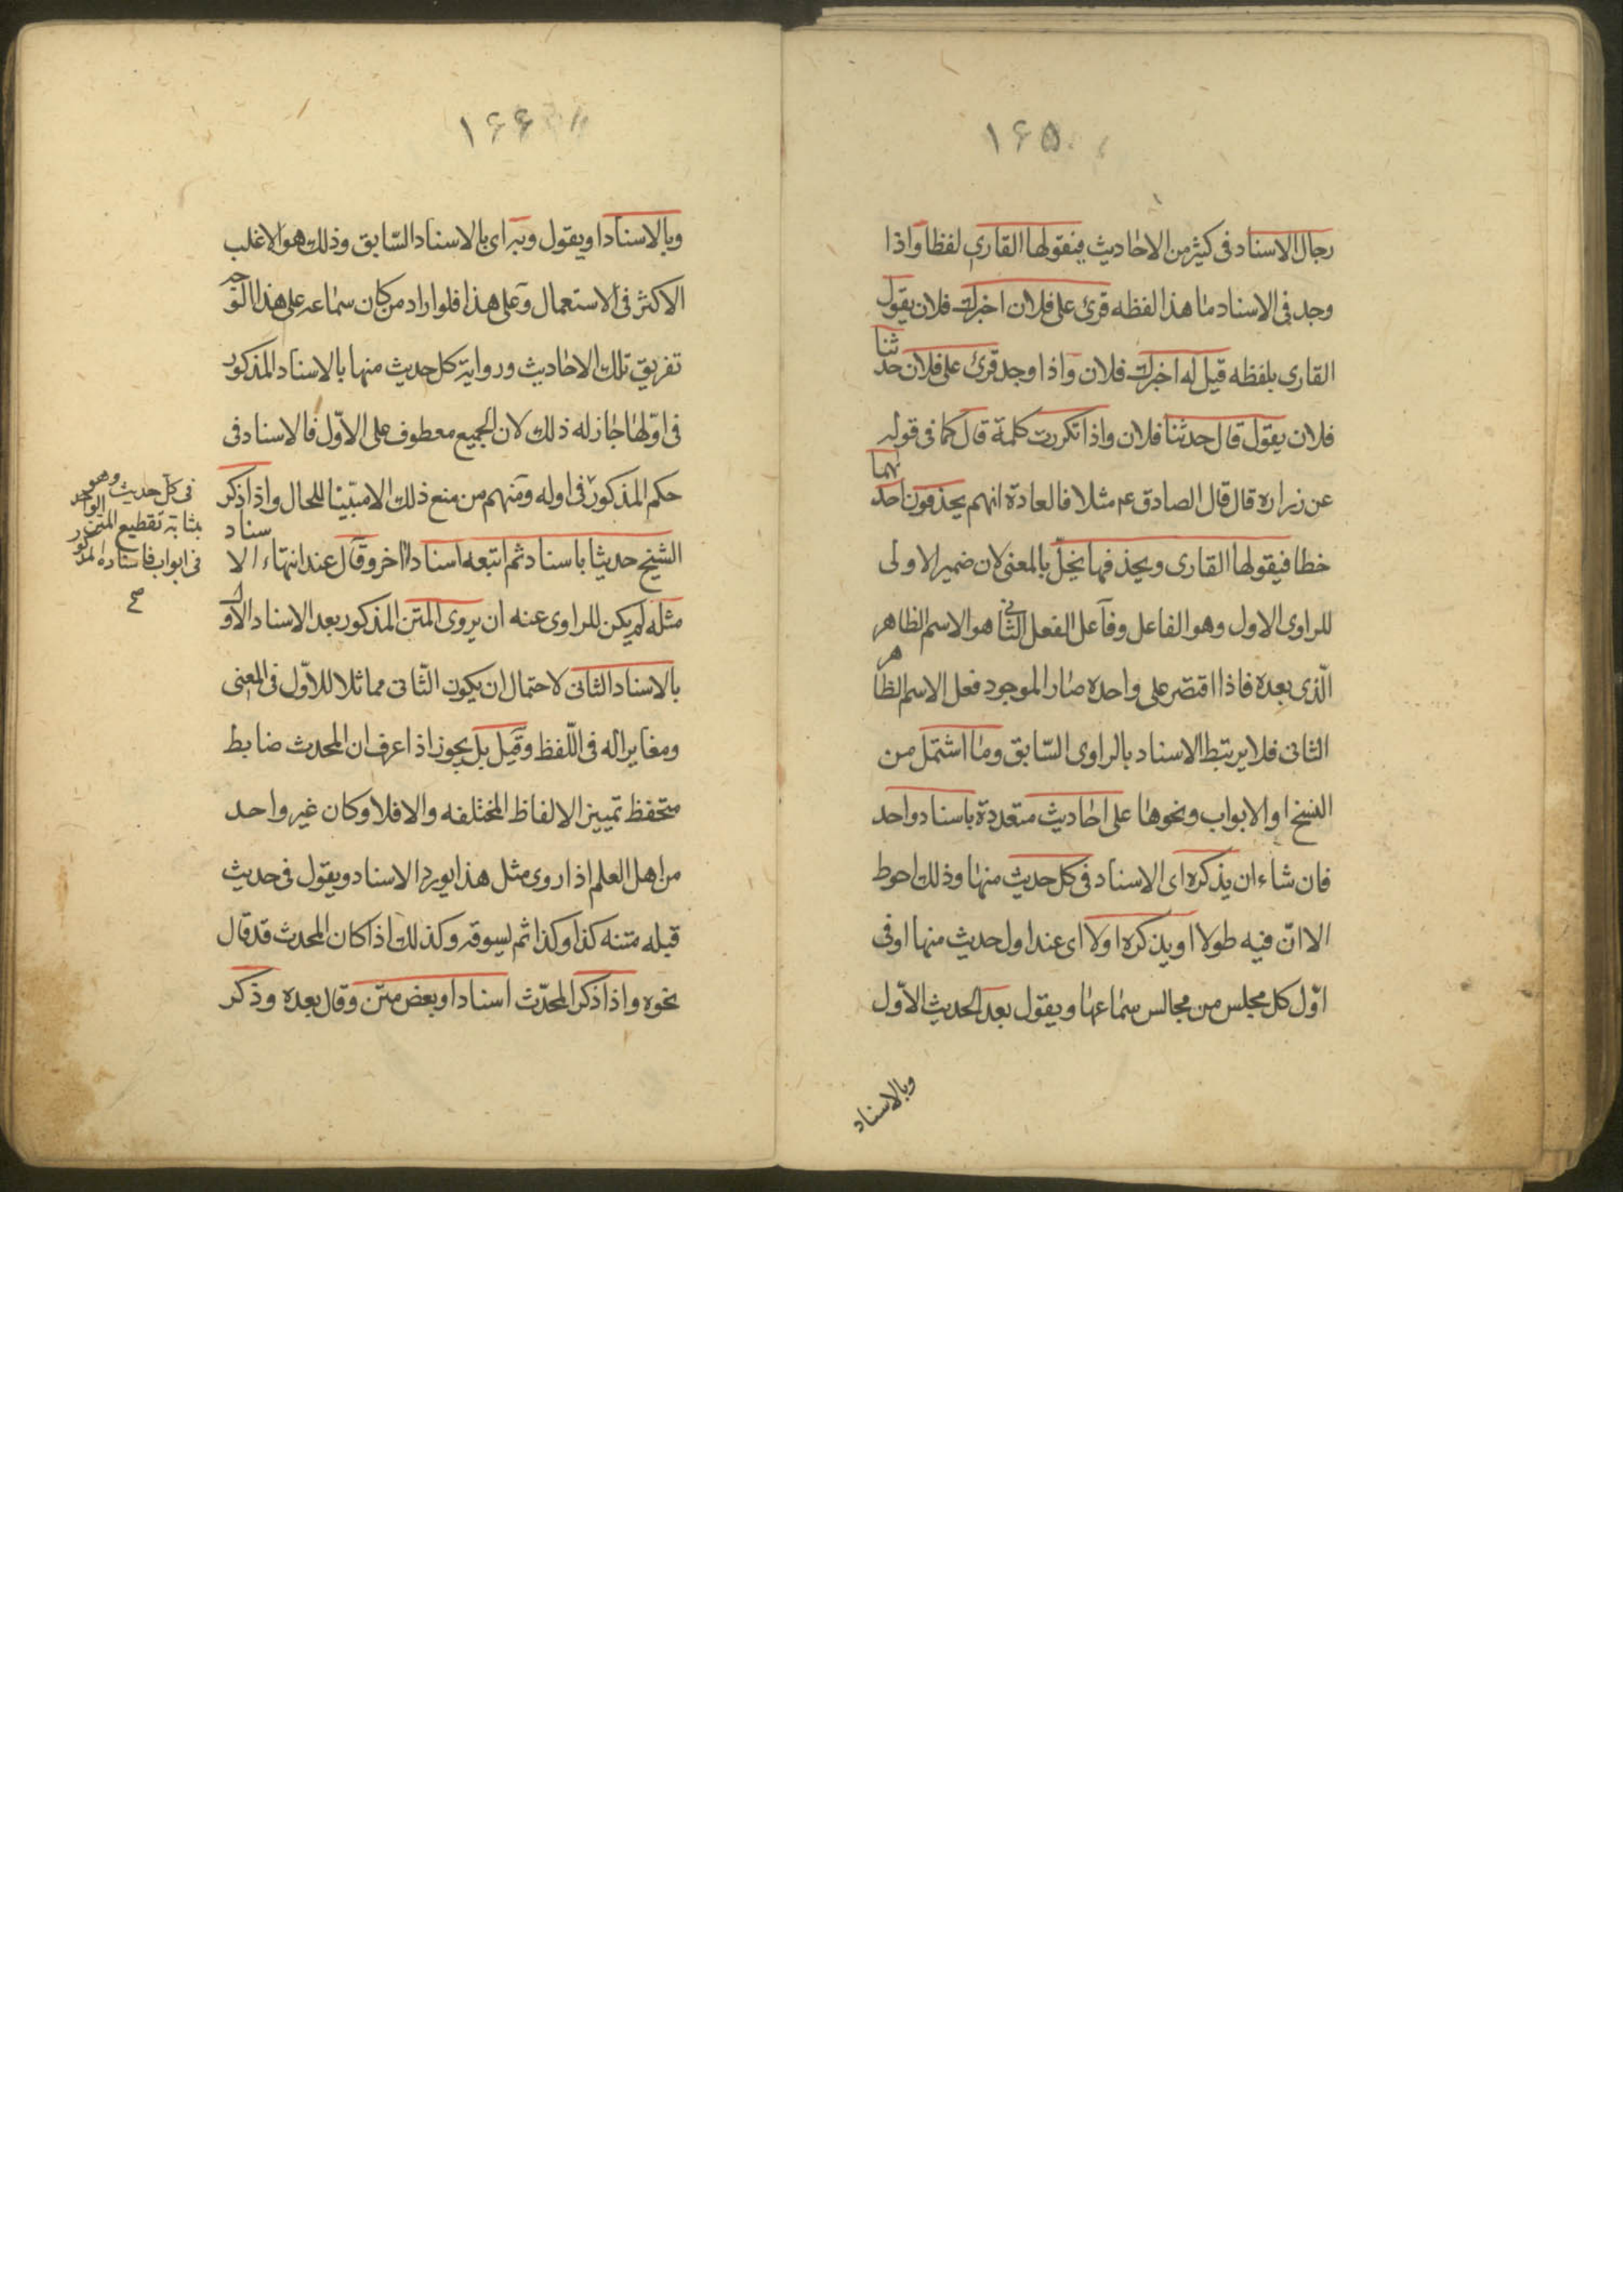 ۱۶۵
رجال الاسناد فى كثير من الاحاديث فيقولها القارى لفظا واذا
وجد فى الاسناد ما هذا لفظه قرئ على فلان اخبرك فلان يقول
القارى بلفظه قيل له اخبرك فلان واذا وجد قرئ على فلان حدثنا
فلان يقول قال حدثنا فلان واذا تكررت كلمة قال كما فى قوله
عن زرارة قال قال الصادق ع مثلا فالعادة انهم يحذفون احدهما
خطا فيقولها القارى ويحذفها يخلّ بالمعنى لان ضمير الاولى
للراوى الاول وهو الفاعل وفاعل الفعل الثانى هو الاسم الظاهر
الّذى بعده فاذا اقتصر على واحده صار الموجود فعل الاسم الظاهر
الثانى فلا يرتبط الاسناد بالراوى السّابق وما اشتمل من
النسخ او الابواب ونحوها على احاديث متعددة باسناد واحد
فان شاء ان يذكره اى الاسناد فى كل حديث منها وذلك احوط
الا انّ فيه طولا او يذكره اولا اى عند اول حديث منها او فى
اوّل كل مجلس من مجالس سماعها ويقول بعد الحديث الاوّل
وبالاسناد
۱۶۶
وبالاسناد او يقول وبه اى بالاسناد السّابق وذلك هو الاغلب
الاكثر فى الاستعمال وعلى هذا فلو اراد من كان سماعه على هذا الوجه
تفريق تلك الاحاديث ورواية كل حديث منها بالاسناد المذكور
فى اوّلها جاز له ذلك لان الجميع معطوف على الاوّل فالاسناد فى
حكم المذكور فى اوله ومنهم من منع ذلك الا مبيّنا للحال واذا ذكر
الشيخ حديثا باسناد ثم اتبعه اسنادا اخر وقال عند انتهاء الاسناد
مثله لم يكن للراوى عنه ان يروى المتن المذكور بعد الاسناد الاول
بالاسناد الثانى لاحتمال ان يكون الثّانى مماثلا للاوّل فى المعنى
ومغايرا له فى اللّفظ وقيل بل يجوز اذا عرف ان المحدث ضابط
متحفظ تمييز الالفاظ المختلفه والا فلا وكان غير واحد
من اهل العلم اذا روى مثل هذا يورد الاسناد ويقول فى حديث
قبله متنه كذا وكذا ثم يسوقه وكذلك اذا كان المحدث قد قال
نحوه واذا ذكر المحدّث اسنادا وبعض متن وقال بعده وذكر
فى كل حديث وهو
بمثابة تقطيع المتن الواحد
فى ابواب فاسناده المذكور
صح